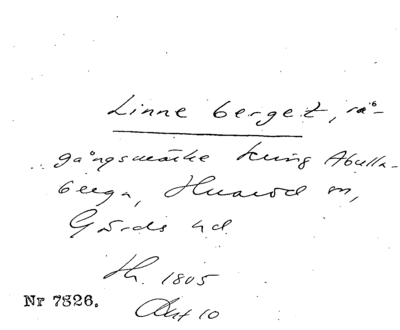 Linne berget, rå-
gångsmärke kring Abulla-
berga, Huaröd sn,
Gärds hd.
Hr. 1805
Akt 10
Nr 7326.